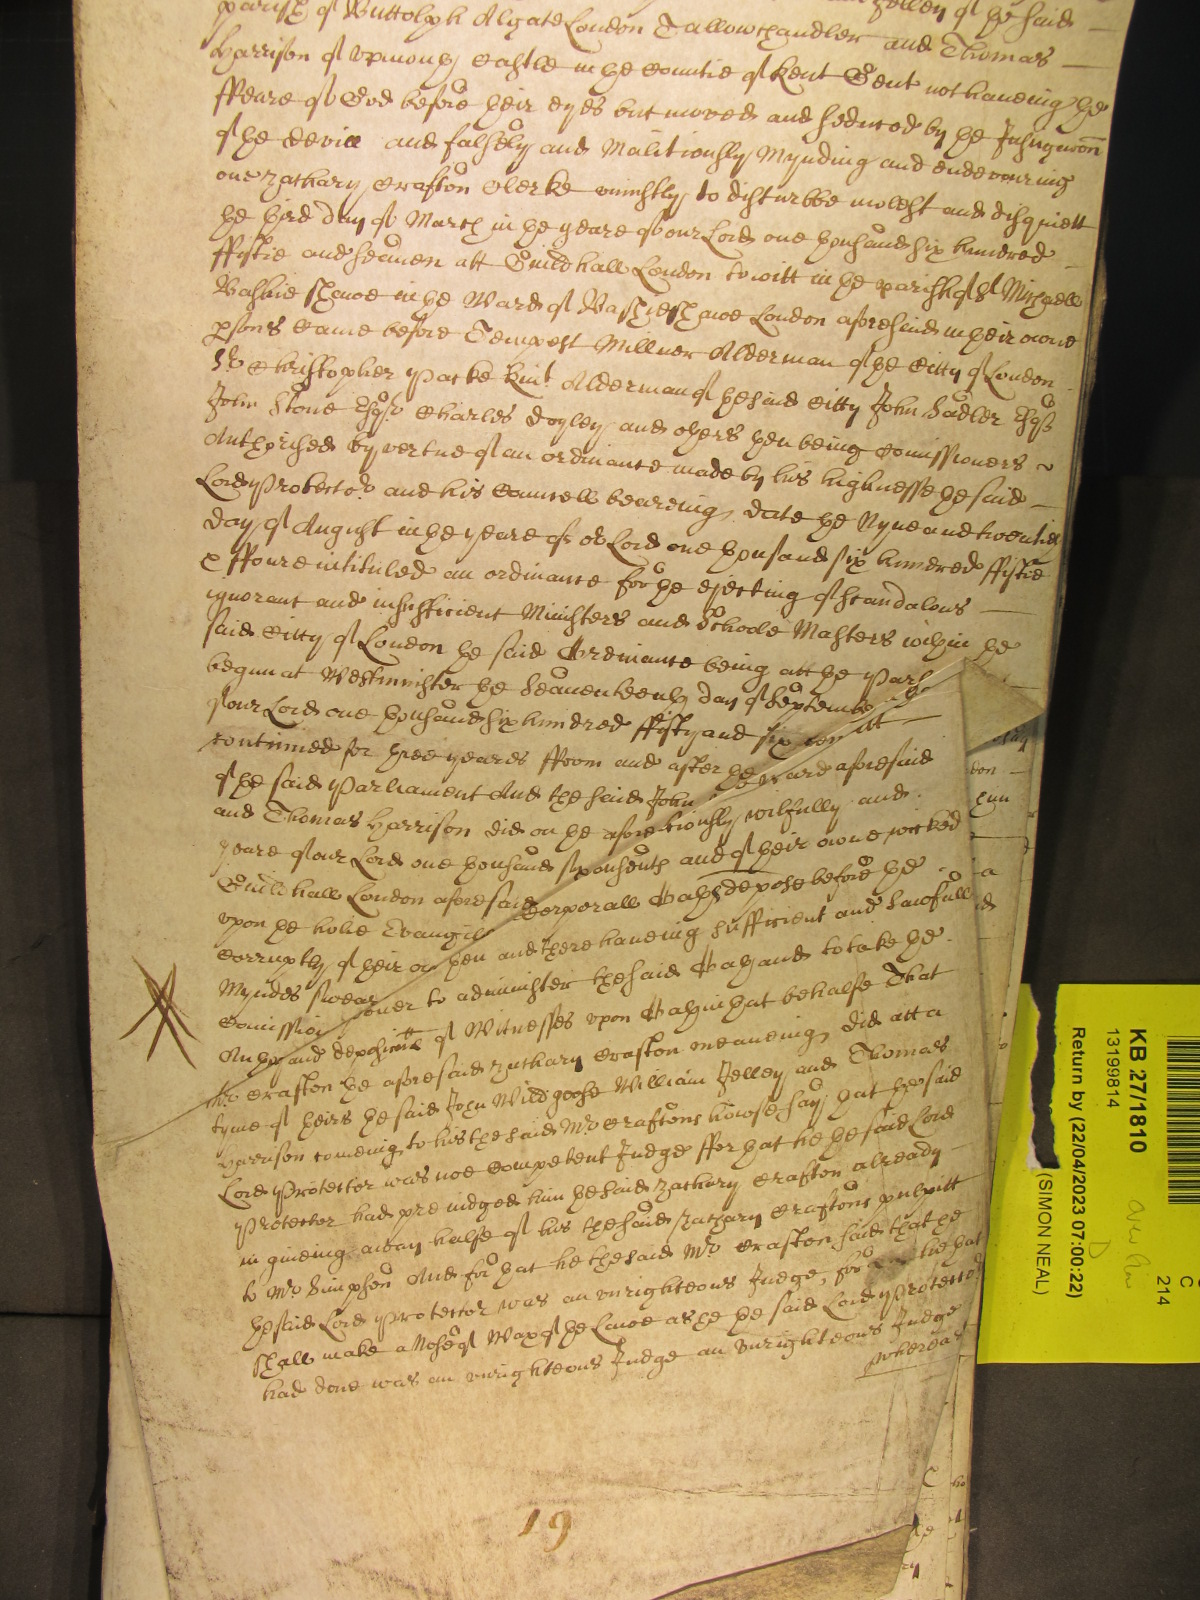 parish of Buttolph Algate London Tallowchandler and Thomas
Harrison of Castle in the Countie of Kent Gent not haueing the
ffeare of God before their eyes but moved and seduced by the Instigacon
of the Devill and falsely and Malitiously Mynding and endevouring
one Zachary Crafton Clerke uniustly to disturbbe molest and disquiett
the third day of March in the yeare of our Lord one thousand six hundred
ffiftie and seaven att Guildhall London to witt in the parish of St Michaell
Bassieshawe in the Ward of Bassieshawe London aforesaid in their owne
psons Came before Tempest Millner Alderman of the Citty of London
Sr Christopher Packe knt Alderman of the said Citty John Sadler Esqr
John Stone Esqr Charles Doyley and others then being Comissioners
Authorised by vertue of an ordinance made by his highnesse the said
Lord Protector and his Counsell beareing date the Nyne and twentith
day of August in the yeare of or Lord one thousand six hundred ffiftie
& ffoure intituled an ordinance for the ejecting of scandalous
ignorant and insufficient Ministers and Schoole Masters within the
said Citty of London the said Ordinance being att the Parl
begun at Westminster the seaventeenth day of September
of our Lord one thousand six hundred ffifty and six
continued for three yeares ffrom and after the aforesaid
of the said Parliament And the said John
and Thomas Harrison did on the afore tiously wilfully and
yeare of our Lord one thousand six and of their owne wicked
Guildhall London aforesaid Corporall Oathes depose before the
upon the holie Evangil
Corruptly of their ow then and there haueing sufficient and lawfull
Myndes swear ower to administer the said Oath and to take the
Comissio of Witnesses upon Oath in that behalfe That
Mr Crafton the aforesaid Zachary Crafton meaneing did att a
tyme of theirs the said John Wildgoose William Jelley and Thomas
Harrison comeing to his the said Mr Craftons howse say that the said
Lord Protector was noe Competent Judge ffor that he the said Lord
Protector had pre iudged him the said Zachary Crafton already
in giueing away halfe of his the said Zachary Craftons pulpitt
to Mr Simpson And for that he the said Mr Crafton said that he
the said Lord Protector was an unrighteous Judge, for he that
shall make a Nose of Wax of the Lawe as he the said Lord Protector
had done was an unrighteous Judge an Unrighteous Judge
Whereas
19
KB 27/1810
13199814
Return by (22/04/2023 07:00:22)
(SIMON NEAL)
C
214
D